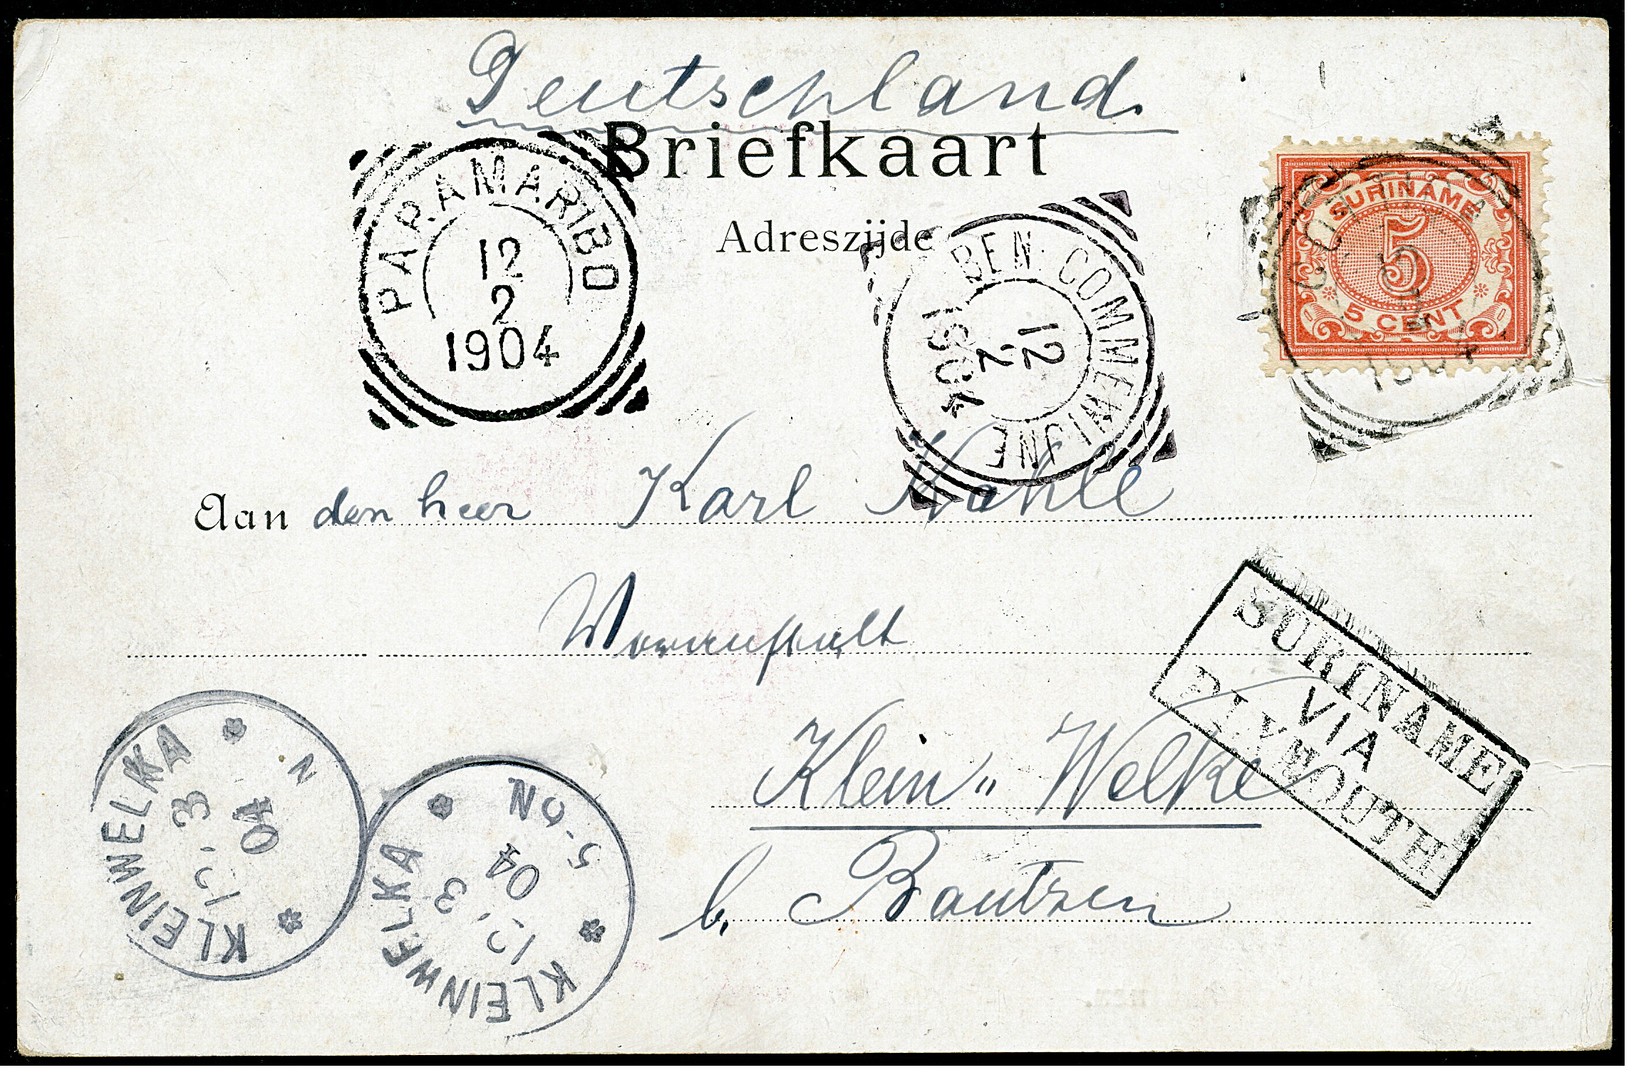 Deutschland
Briefkaart
Adreszijde
PARAMARIBO
12
2
1904
BEN. COMMEWIJNE
12
2
1904
SURINAME
5
5 CENT
COTTICA
Aan den heer Karl
SURINAME
VIA
PLYMOUTH
Klein„ Welke
b. Bautzen
KLEINWELKA
3
04
N
KLEINWELKA
3
04
5-6N